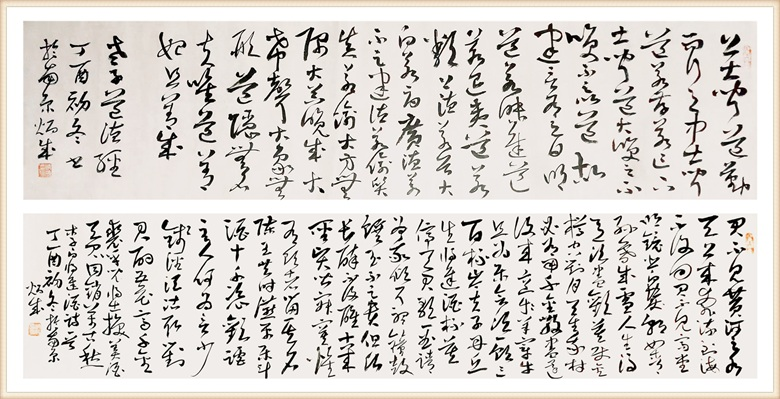 上士聞道勤
而行之中士聞
道若存若亡下
士聞道大笑之不
笑不足以為道故
建言有之曰明
道若昧進道
若退夷道若
纇上德若谷大
白若辱廣德若
不足建德若偷質
真若渝大方無
隅大器晚成大
希聲大象無
形道隱無名
夫唯道善
始且善成
老子道德經
丁酉初冬書
於南京炳成
君不見黃河之水
天上來奔流到海
不復回君不見高堂
明鏡悲白髮朝如青
絲暮成雪人生得
意須盡歡莫使金
樽空對月天生我材
必有用千金散盡還
復來烹羊宰牛
且為樂會須一飲三
百杯岑夫子丹丘
生將進酒杯莫
停與君歌一曲請
君為我傾耳聽鐘鼓
饌玉不足貴但願
長醉不復醒古來
聖賢皆寂寞惟
有飲者留其名
陳王昔時宴平樂斗
酒十千恣歡謔
主人何為言少
錢徑須沽取對
君酌五花馬千金
裘呼兒將出換美酒
與君同銷萬古愁
李白將進酒詩一首
丁酉初冬於南京
炳成